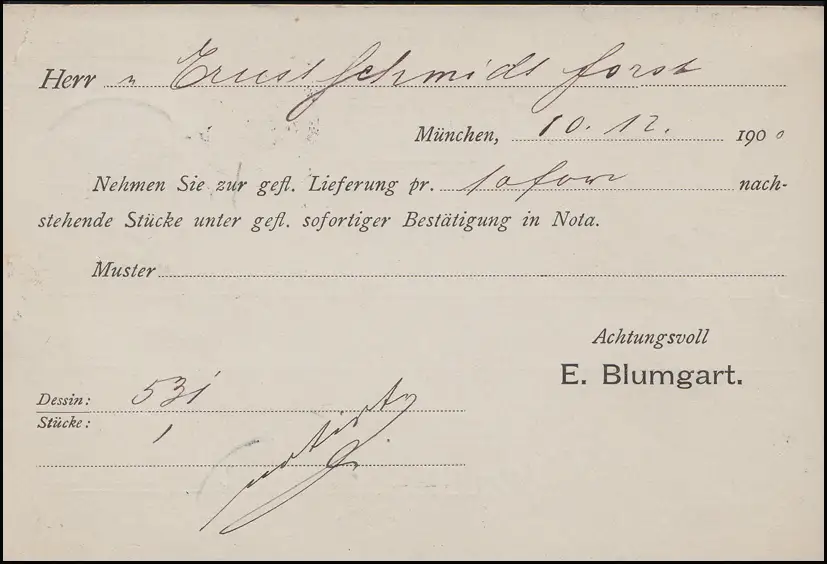 Herrn Ernst Schmidt Forst
München, 10. 12. 1900
Nehmen Sie zur gefl. Lieferung pr. sofort nach-
stehende Stücke unter gefl. sofortiger Bestätigung in Nota.
Muster
Achtungsvoll
E. Blumgart.
Dessin: 531
Stücke: 1
notirt